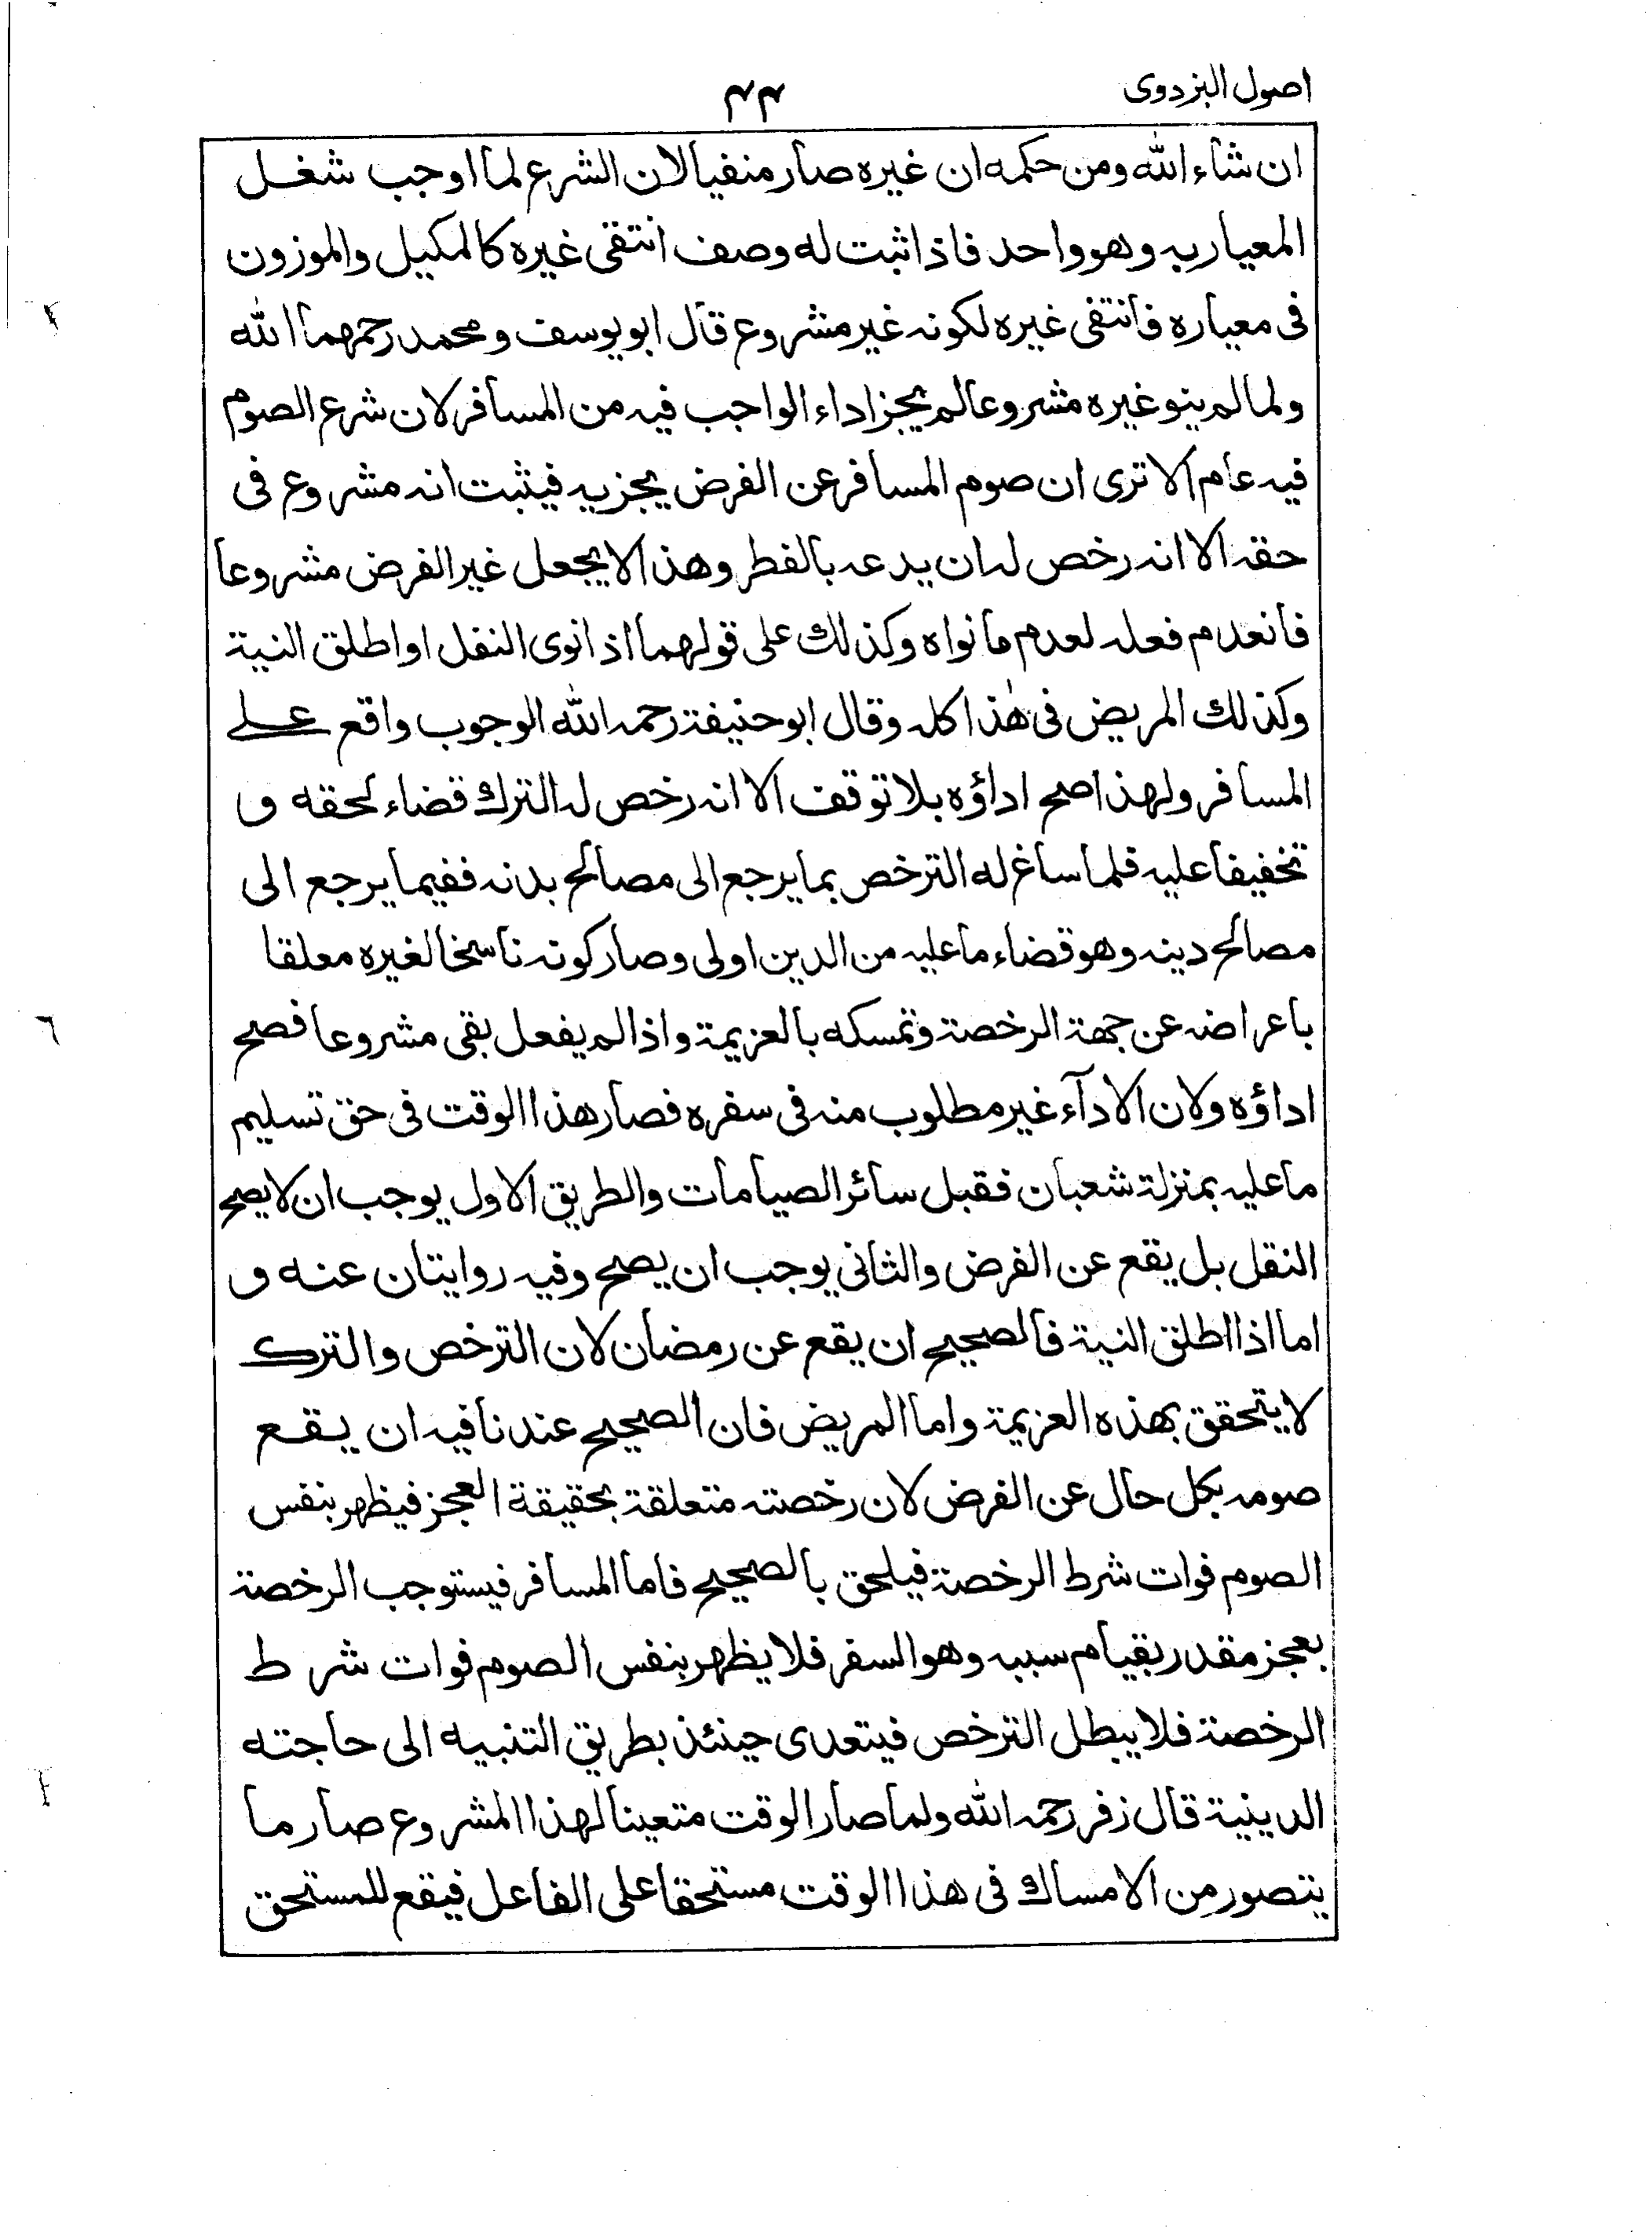 اصول البزدوى
۴۴
ان شاء الله ومن حكمه ان غيره صار منفيا لان الشرع لما اوجب شغل
المعيار به وهو واحد فاذا ثبت له وصف انتفى غيره كالمكيل والموزون
فى معياره فانتفى غيره لكونه غير مشروع قال ابو يوسف ومحمد رحمهما الله
ولما لم ينو غيره مشروعا لم يجز اداء الواجب فيه من المسافر لان شرع الصوم
فيه عام الا ترى ان صوم المسافر عن الفرض يجزيه فيثبت انه مشروع فى
حقه الا انه رخص له ان يدعه بالفطر وهذا لا يجعل غير الفرض مشروعا
فانعدم فعله لعدم ما نواه وكذلك على قولهما اذا نوى النفل او اطلق النية
وكذلك المريض فى هٰذا كله وقال ابو حنيفة رحمه الله الوجوب واقع على
المسافر ولهذا صح اداؤه بلا توقف الا انه رخص له الترك قضاء لحقه و
تخفيفا عليه فلما ساغ له الترخص بما يرجع الى مصالح بدنه ففيما يرجع الى
مصالح دينه وهو قضاء ما عليه من الدين اولى وصار كونه ناسخا لغيره معلقا
باعراضه عن جهة الرخصة وتمسكه بالعزيمة واذا لم يفعل بقى مشروعا فصح
اداؤه ولان الادآء غير مطلوب منه فى سفره فصار هذا الوقت فى حق تسليم
ما عليه بمنزلة شعبان فقبل سائر الصيامات والطريق الاول يوجب ان لا يصح
النفل بل يقع عن الفرض والثانى يوجب ان يصح وفيه روايتان عنه و
اما اذا اطلق النية فالصحيح ان يقع عن رمضان لان الترخص والترك
لا يتحقق بهذه العزيمة واما المريض فان الصحيح عندنا فيه ان يقع
صومه بكل حال عن الفرض لان رخصته متعلقة بحقيقة العجز فيظهر بنفس
الصوم فوات شرط الرخصة فيلحق بالصحيح فاما المسافر فيستوجب الرخصة
بعجز مقدر بقيام سببه وهو السفر فلا يظهر بنفس الصوم فوات شرط
الرخصة فلا يبطل الترخص فيتعدى حينئذ بطريق التنبيه الى حاجته
الدينية قال زفر رحمه الله ولما صار الوقت متعينا لهذا المشروع صار ما
يتصور من الامساك فى هذا الوقت مستحقا على الفاعل فيقع للمستحق